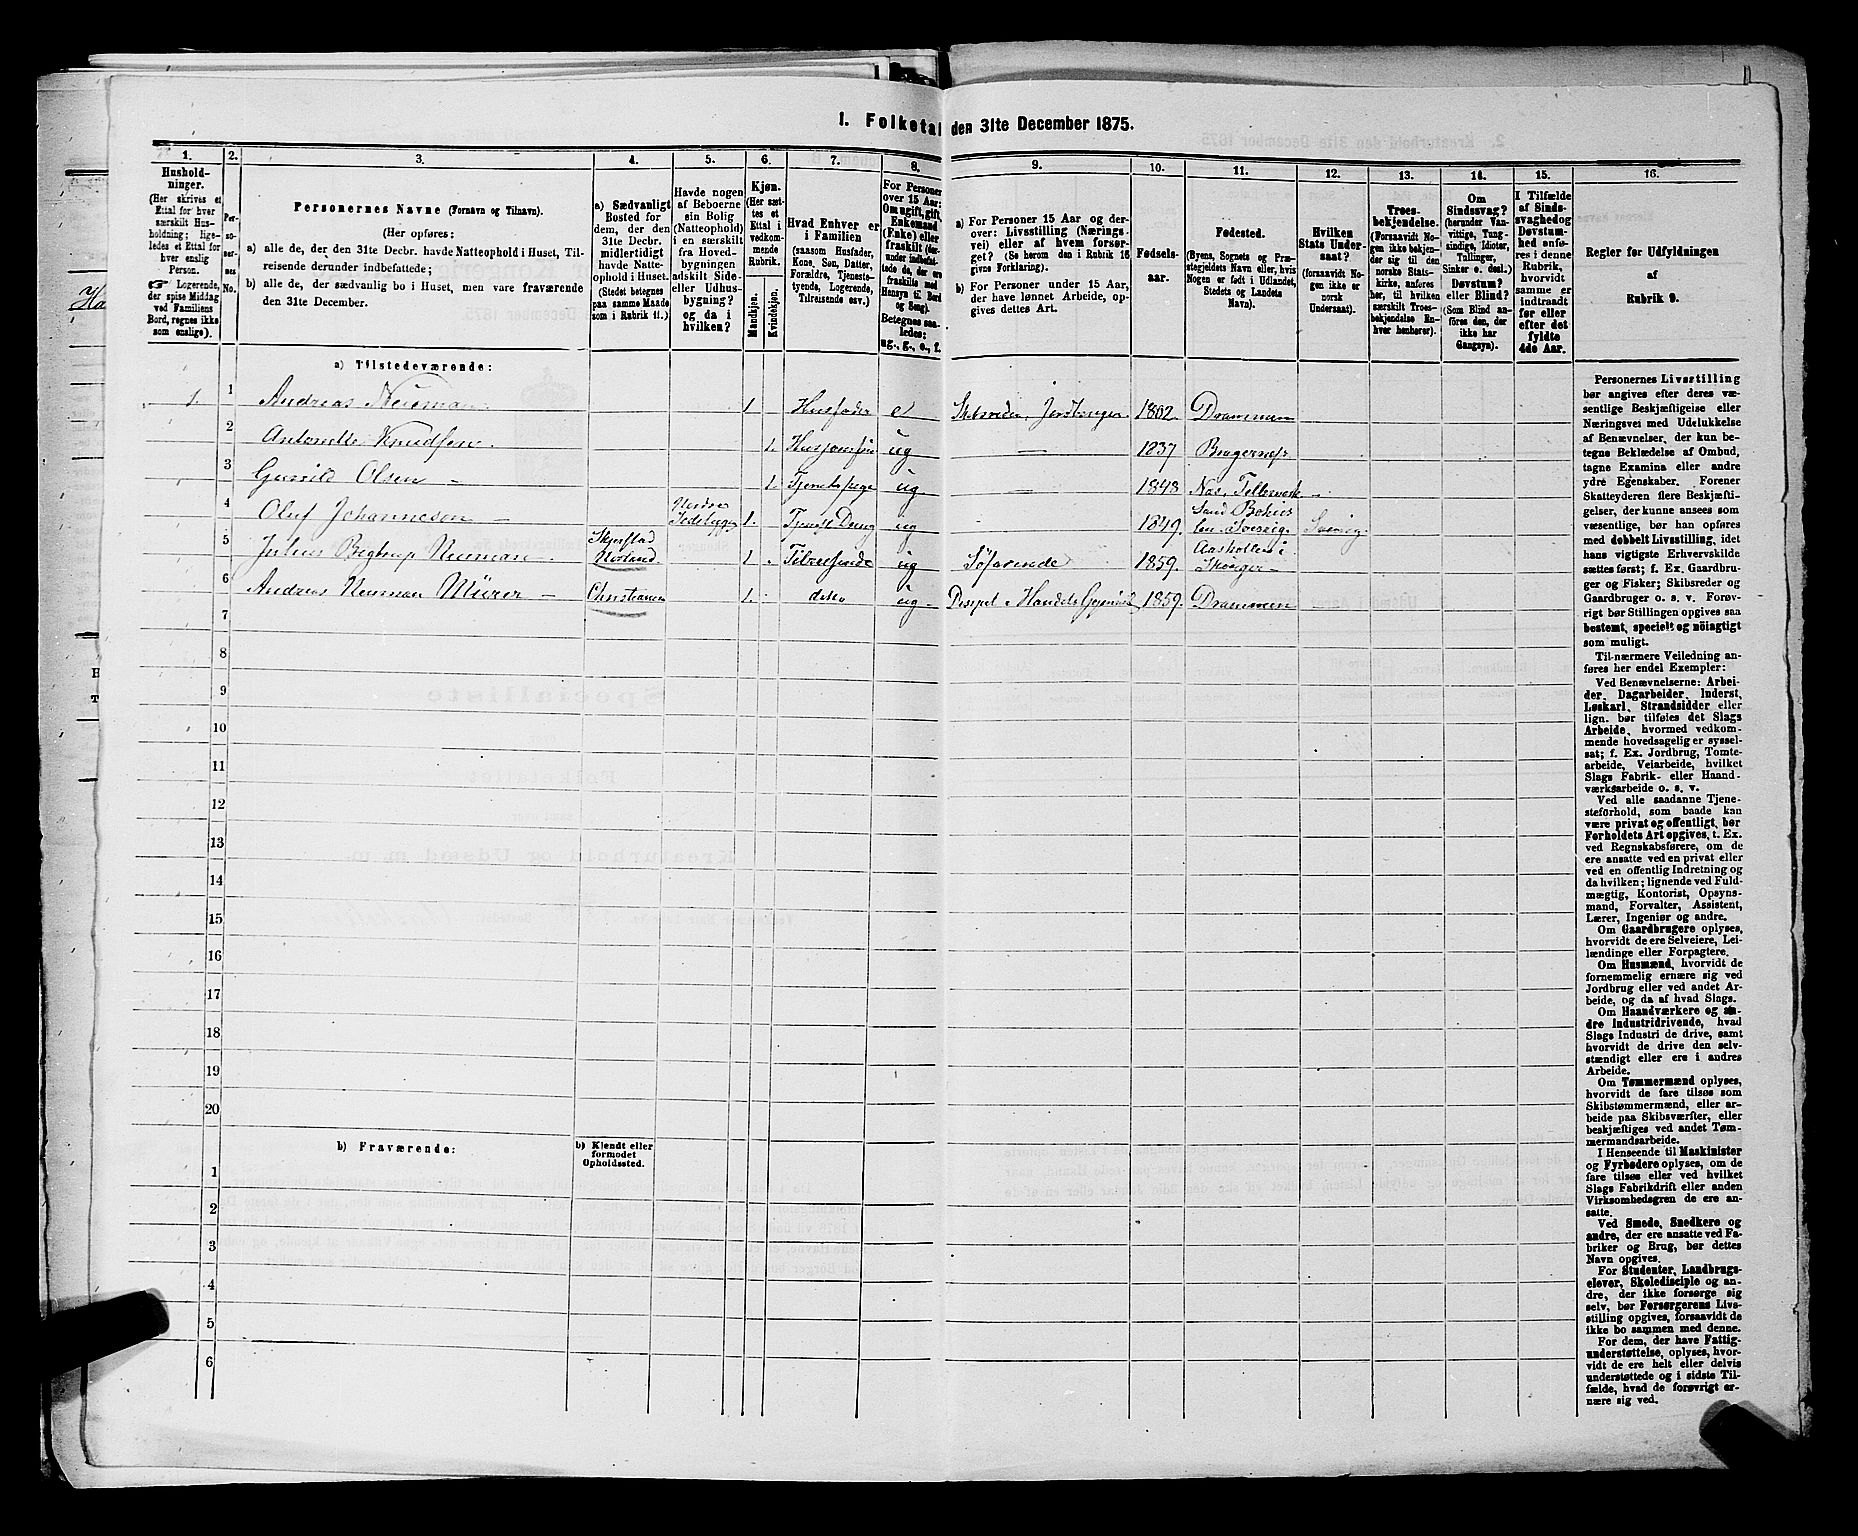 1. Folketal den 31te December 1875.
1. 2. 3. 4. 5. 6. 7. 8. 9. 10. 11. 12. 13. 14. 15. 16.
Hushold-
ninger.
(Her skrives et
Ettal for hver
særskilt Hus-
holdning; lige-
ledes et Ettal for
hver enslig
Person.
Logerende,
der spise Middag
ved Familiens
Bord, regnes ikke
som enslige).
Per-
so-
ner-
nes
No.
Personernes Navne (Fornavn og Tilnavn).
(Her opføres:
a) alle de, der den 31te Decbr. havde Natteophold i Huset, Til-
reisende derunder indbefattede;
b) alle de, der sædvanlig bo i Huset, men vare fraværende
den 31te December.
a) Sædvanligt
Bosted for
dem, der den
31te Decbr.
midlertidigt
havde Natte-
ophold i Huset.
(Stedet betegnes
paa samme Maade
som i Rubrik 11.)
Havde nogen
af Beboerne
sin Bolig
(Natteophold)
i en særskilt
fra Hoved-
bygningen
adskilt Side-
eller Udhus-
bygning?
og da i
hvilken?
Kjøn.
(Her sæt-
tes et
Ettal i
vedkom-
mende
Rubrik.
Mandkjøn.
Kvindekjøn.
Hvad Enhver er
i Familien
(saasom Husfader,
Kone, Søn, Datter,
Forældre, Tjeneste-
tyende, Logerende,
Tilreisende osv.)
For Personer
over 15 Aar:
Om ugift, gift,
Enkemand
(Enke) eller
fraskilt
Betegnes saa-
ledes:
ug., g., e., f.
a) For Personer 15 Aar og der-
over: Livsstilling (Nærings-
vei) eller af hvem forsør-
get? (Se herom den i Rubrik 16
givne Forklaring).
b) For Personer under 15 Aar,
der have lønnet Arbeide, op-
gives dettes Art.
Fødsels-
aar.
Fødested.
(Byens, Sognets og Præ-
stegjeldets Navn eller, hvis
Nogen er født i Udlandet,
Stedets og Landets
Navn).
Hvilken
Stats Under-
saat?
(forsaavidt No-
gen ikke er
norsk
Undersaat).
Troes-
bekjendelse.
(Forsaavidt No-
gen ikke bekjen-
der sig til den
norske Stats-
kirke, anføres
her, til hvilken
særskilt Troes-
bekjendelse En-
hver henhører).
Om
Sindssvag?
(herunder Van-
vittige, Tung-
sindige, Idioter,
Tullinger,
Sinker o. desl.)
Døvstum?
eller Blind?
(Som Blind an-
føres den, der
ikke har
Gangsyn).
I Tilfælde
af Sinds-
svaghed og
Døvstum-
hed anfø-
res i denne
Rubrik,
hvorvidt
samme er
indtraadt
før eller
efter det
fyldte
4de Aar.
Regler for Udfyldningen
af
Rubrik 9.
a) Tilstedeværende:
1. 1 Andreas Neuman 1 Husfader e Skibsreder, Jordbruger 1802. Drammen
2 Antonette Knudsen 1. ug — 1837 Bragernes
3 Gunild Olsen — 1. Tjenestepige ug — 1848
4 Oluf Johanneson — 1. ug — 1849.
5 Julius Neuman 1 Tilreisende ug Søfarende 1859.
6 Andreas Neuman Mürer — Christiania 1. ditto ug 1859. Drammen
7
8
9
10
11
12
13
14
15
16
17
18
19
20
b) Fraværende:
b) Kjendt eller
formodet
Opholdssted.
1
2
3
4
5
6
Personernes Livsstilling
bør angives efter deres væ-
sentlige Beskjæftigelse eller
Næringsvei med Udelukkelse
af Benævnelser, der kun be-
tegne Beklædelse af Ombud,
tagne Examina eller andre
ydre Egenskaber. Forener
Skatteyderen flere Beskjæfti-
gelser, der kunne ansees som
væsentlige, bør han opføres
med dobbelt Livsstilling, idet
hans vigtigste Erhvervskilde
sættes først; f. Ex. Gaardbru-
ger og Fisker; Skibsreder og
Gaardbruger o. s. v. Forøv-
rigt bør Stillingen opgives saa
bestemt, specielt og nöiagtigt
som muligt.
Til nærmere Veiledning an-
føres her endel Exempler:
Ved Benævnelserne: Arbei-
der, Dagarbeider, Inderst,
Løskarl, Strandsidder eller
lign. bør tilføies det Slags
Arbeide, hvormed vedkom-
mende hovedsagelig er syssel-
sat; f. Ex. Jordbrug, Tomte-
arbeide, Veiarbeide, hvilket
Slags Fabrik- eller Haand-
værksarbeide o. s. v.
Ved alle saadanne Tjene-
steforhold, som baade kan
være privat og offentligt, bør
Forholdets Art opgives, t. Ex.
ved Regnskabsførere, om de
ere ansatte ved en privat eller
ved en offentlig Indretning og
da hvilken; lignende ved Fuld-
mægtig, Kontorist, Opsyns-
mand, Forvalter, Assistent,
Lærer, Ingeniør og andre.
Om Gaardbrugere oplyses,
hvorvidt de ere Selveiere, Lei-
lændinge eller Forpagtere.
Om Husmænd, hvorvidt de
fornemmelig ernære sig ved
Jordbrug eller ved andet Ar-
beide, og da af hvad Slags.
Om Haandværkere og an-
dre Industridrivende, hvad
Slags Industri de drive, samt
hvorvidt de drive den selv-
stændigt eller ere i andres
Arbeide.
Om Tømmermænd oplyses,
hvorvidt de fare tilsøs som
Skibstømmermænd, eller ar-
beide paa Skibsværfter, eller
beskjæftiges ved andet Tøm-
mermandsarbeide.
I Henseende til Maskinister
og Fyrbødere oplyses, om de
fare tilsøs eller ved hvilket
Slags Fabrikdrift eller anden
Virksomhedsgren de ere an-
satte.
Ved Smede, Snedkere og
andre, der ere ansatte ved Fa-
briker og Brug, bør dettes
Navn opgives.
For Studenter, Landbrugs-
elever, Skoledisciple og an-
dre, der ikke forsørge sig
selv, bør Forsørgerens Livs-
stilling opgives, forsaavidt de
ikke bo sammen med denne.
For dem, der have Fattig-
understøttelse, oplyses, hvor-
vidt de ere helt eller delvis
understøttede og i sidste Til-
fælde, hvad de forøvrigt er-
nære sig ved.